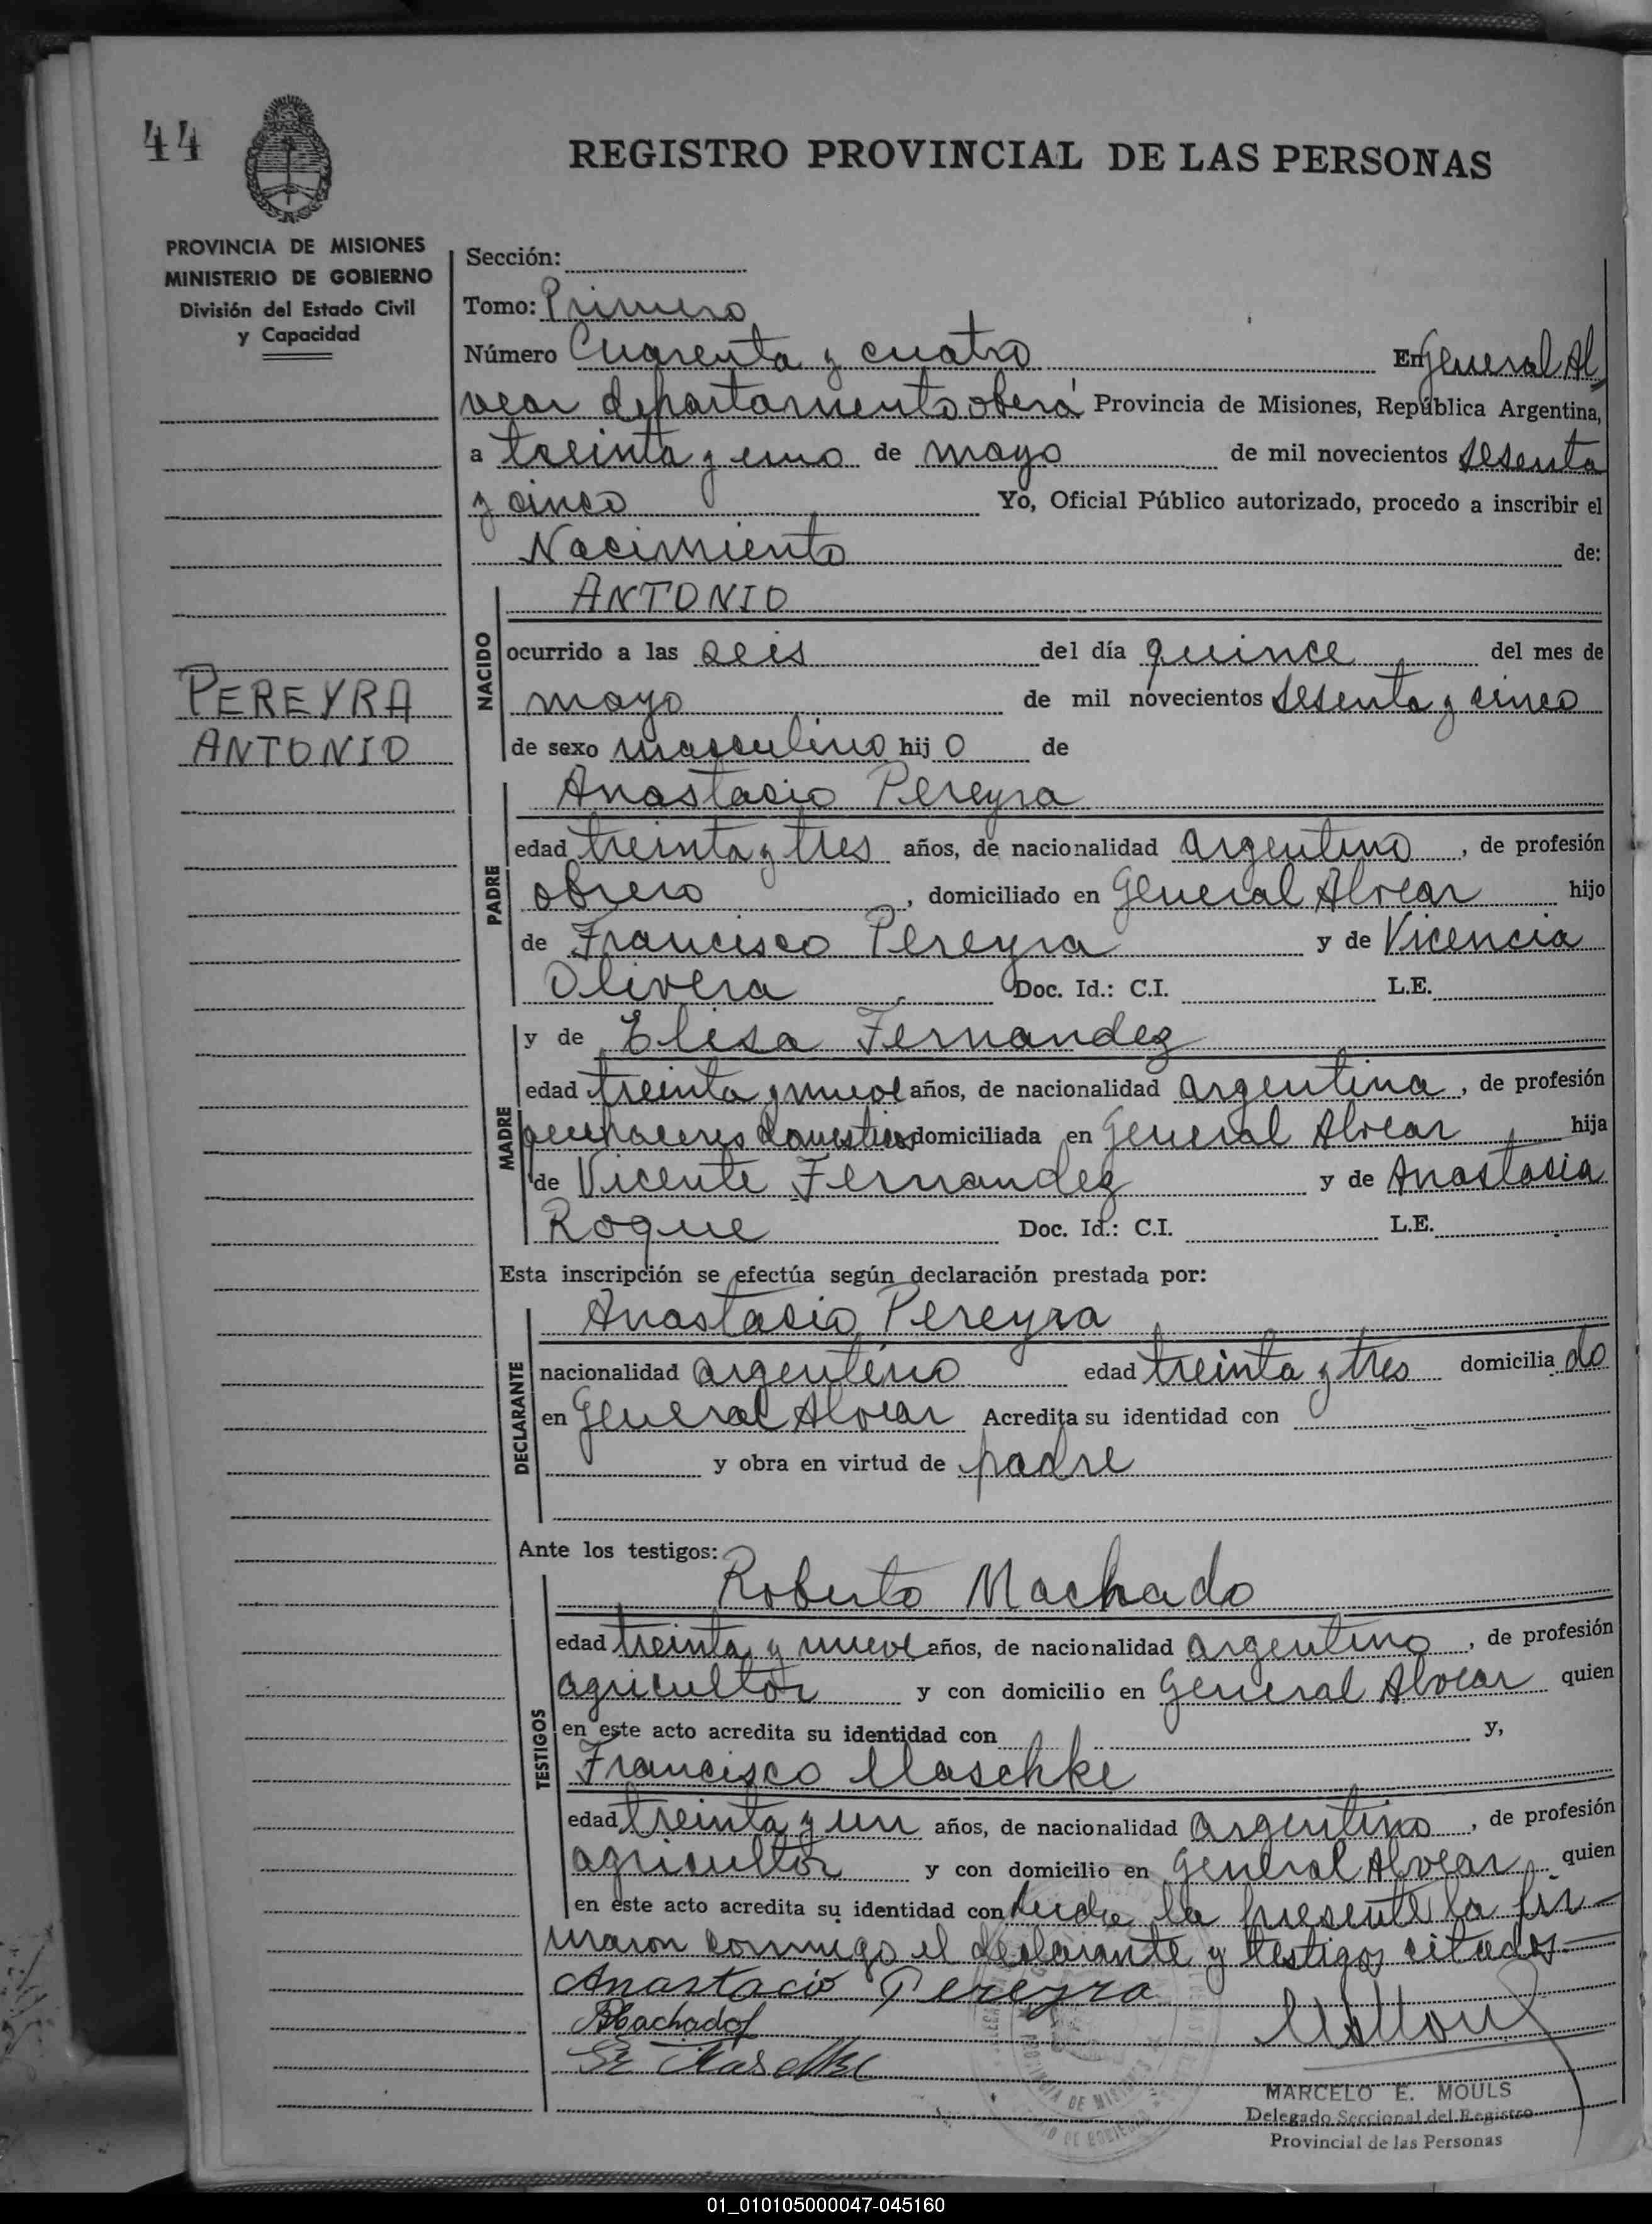 44
REGISTRO PROVINCIAL DE LAS PERSONAS
PROVINCIA DE MISIONES
MINISTERIO DE GOBIERNO
División del Estado Civil
y Capacidad
PEREYRA
ANTONIO
Sección:
Tomo: Primero
Número Cuarenta y cuatro En General Al
vear departamento oberá Provincia de Misiones, República Argentina,
a treinta y uno de mayo de mil novecientos sesenta
y cinco Yo, Oficial Público autorizado, procedo a inscribir el
Nacimiento de:
NACIDO
ANTONIO
ocurrido a las seis del día quince del mes de
mayo de mil novecientos sesenta y cinco
de sexo masculino hijo de
PADRE
Anastacio Pereyra
edad treinta y tres años, de nacionalidad argentino, de profesión
obrero, domiciliado en General Alvear hijo
de Francisco Pereyra y de Vicencia
Olivera Doc. Id.: C.I. L.E.
MADRE
y de Elisa Fernandez
edad treinta y nueve años, de nacionalidad argentina, de profesión
quehaceres domesticos domiciliada en General Alvear hija
de Vicente Fernandez y de Anastacia
Roque Doc. Id.: C.I. L.E.
Esta inscripción se efectúa según declaración prestada por:
DECLARANTE
Anastacio Pereyra
nacionalidad argentino edad treinta y tres domiciliado
en General Alvear Acredita su identidad con
y obra en virtud de padre
Ante los testigos:
TESTIGOS
Roberto Machado
edad treinta y nueve años, de nacionalidad argentino, de profesión
agricultor y con domicilio en General Alvear quien
en este acto acredita su identidad con y,
Francisco Maschke
edad treinta y un años, de nacionalidad argentino, de profesión
agricultor y con domicilio en General Alvear, quien
en este acto acredita su identidad con leida la presente la fir
maron conmigo el declarante y testigos citados
Anastacio Pereyra
RMachado
MARCELO E. MOULS
Delegado Seccional del Registro
Provincial de las Personas
01_010105000047-045160